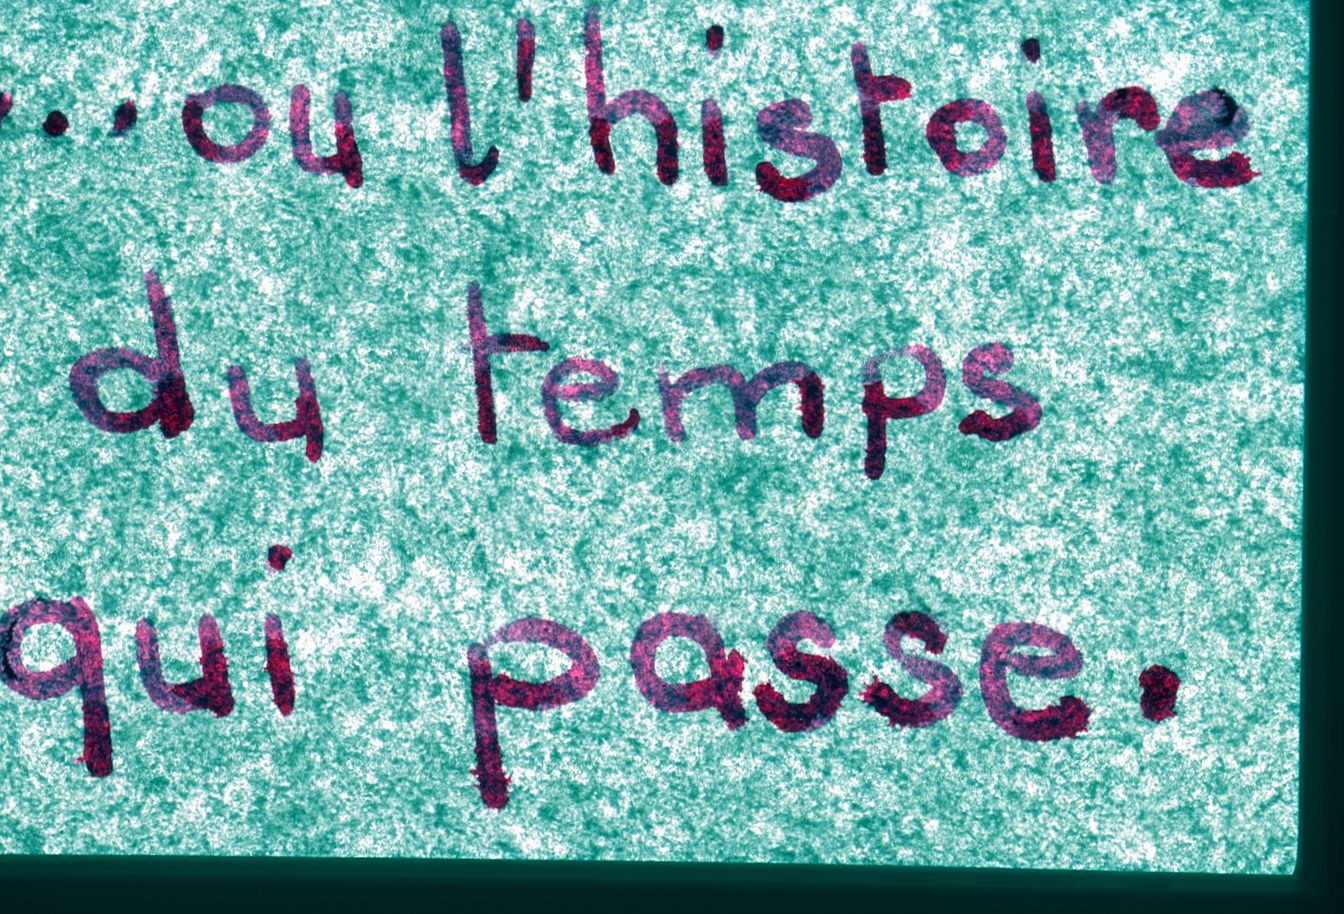 ...ou l'histoire
du temps
qui passe.